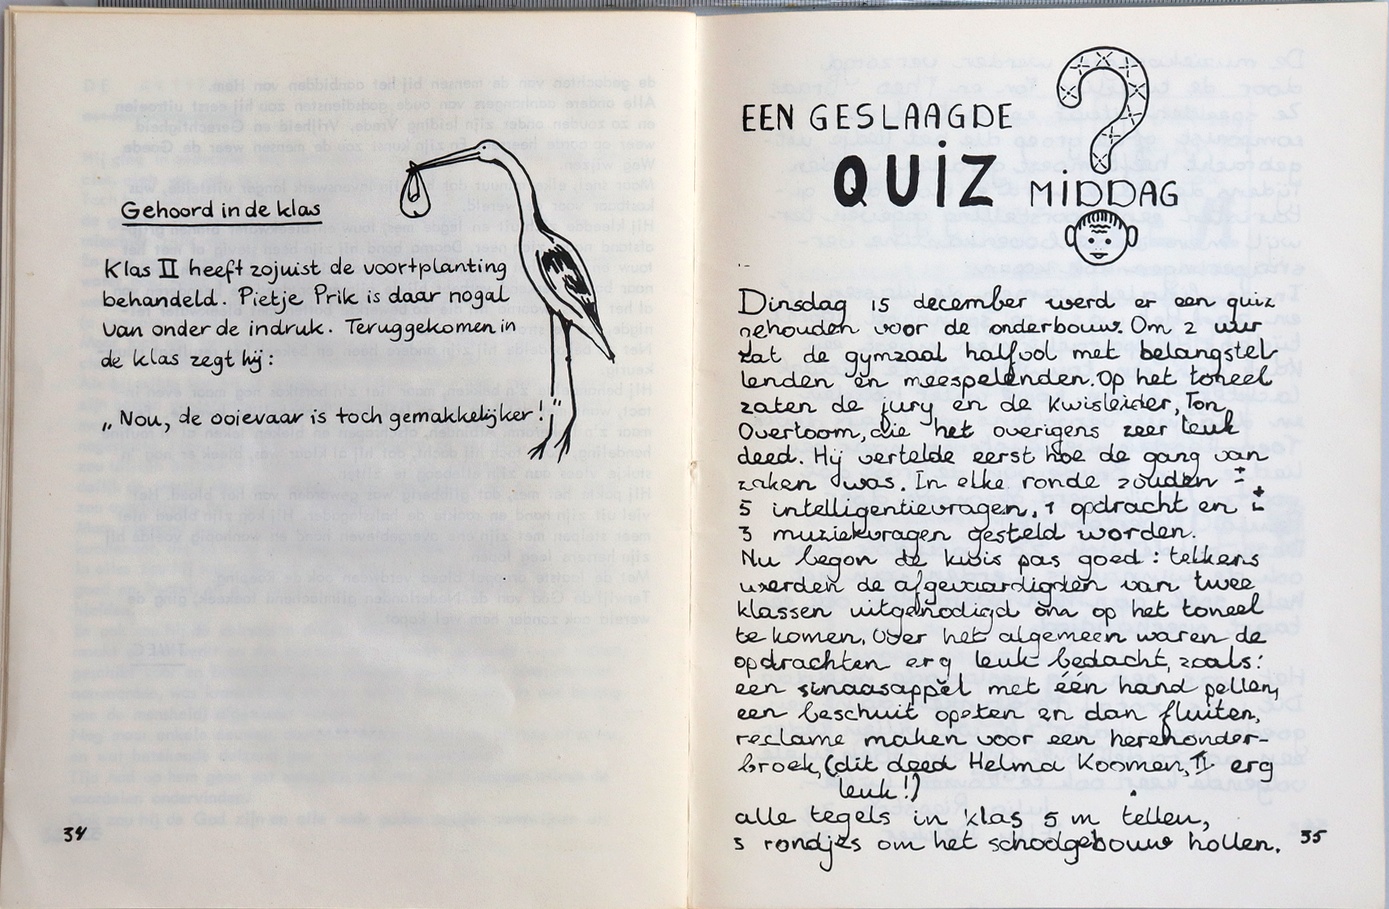 Gehoord in de klas
Klas II heeft zojuist de voortplanting
behandeld. Pietje Prik is daar nogal
van onder de indruk. Teruggekomen in
de klas zegt hij:
„Nou, de ooievaar is toch gemakkelijker!"
34
EEN GESLAAGDE
QUIZ MIDDAG
Dinsdag 15 december werd er een quiz
gehouden voor de onderbouw. Om 2 uur
zat de gymzaal halfvol met belangstel-
lenden en meespelenden. Op het toneel
zaten de jury en de kwisleider, Ton
Overtoom, die het overigens zeer leuk
deed. Hij vertelde eerst hoe de gang van
zaken was. In elke ronde zouden ±
5 intelligentievragen, 1 opdracht en ±
3 muziekvragen gesteld worden.
Nu begon de kwis pas goed: telkens
werden de afgevaardigden van twee
klassen uitgenodigd om op het toneel
te komen. Over het algemeen waren de
opdrachten erg leuk bedacht, zoals:
een sinaasappel met één hand pellen,
een beschuit opeten en dan fluiten,
reclame maken voor een herenonder-
broek, (dit deed Helma Koomen, II erg
leuk!)
alle tegels in klas 5 m tellen,
5 rondjes om het schoolgebouw hollen.
35